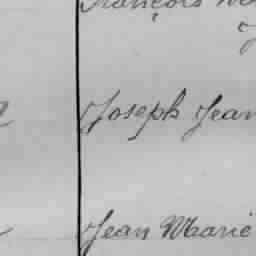 François
Joseph Jean
Jean Marie